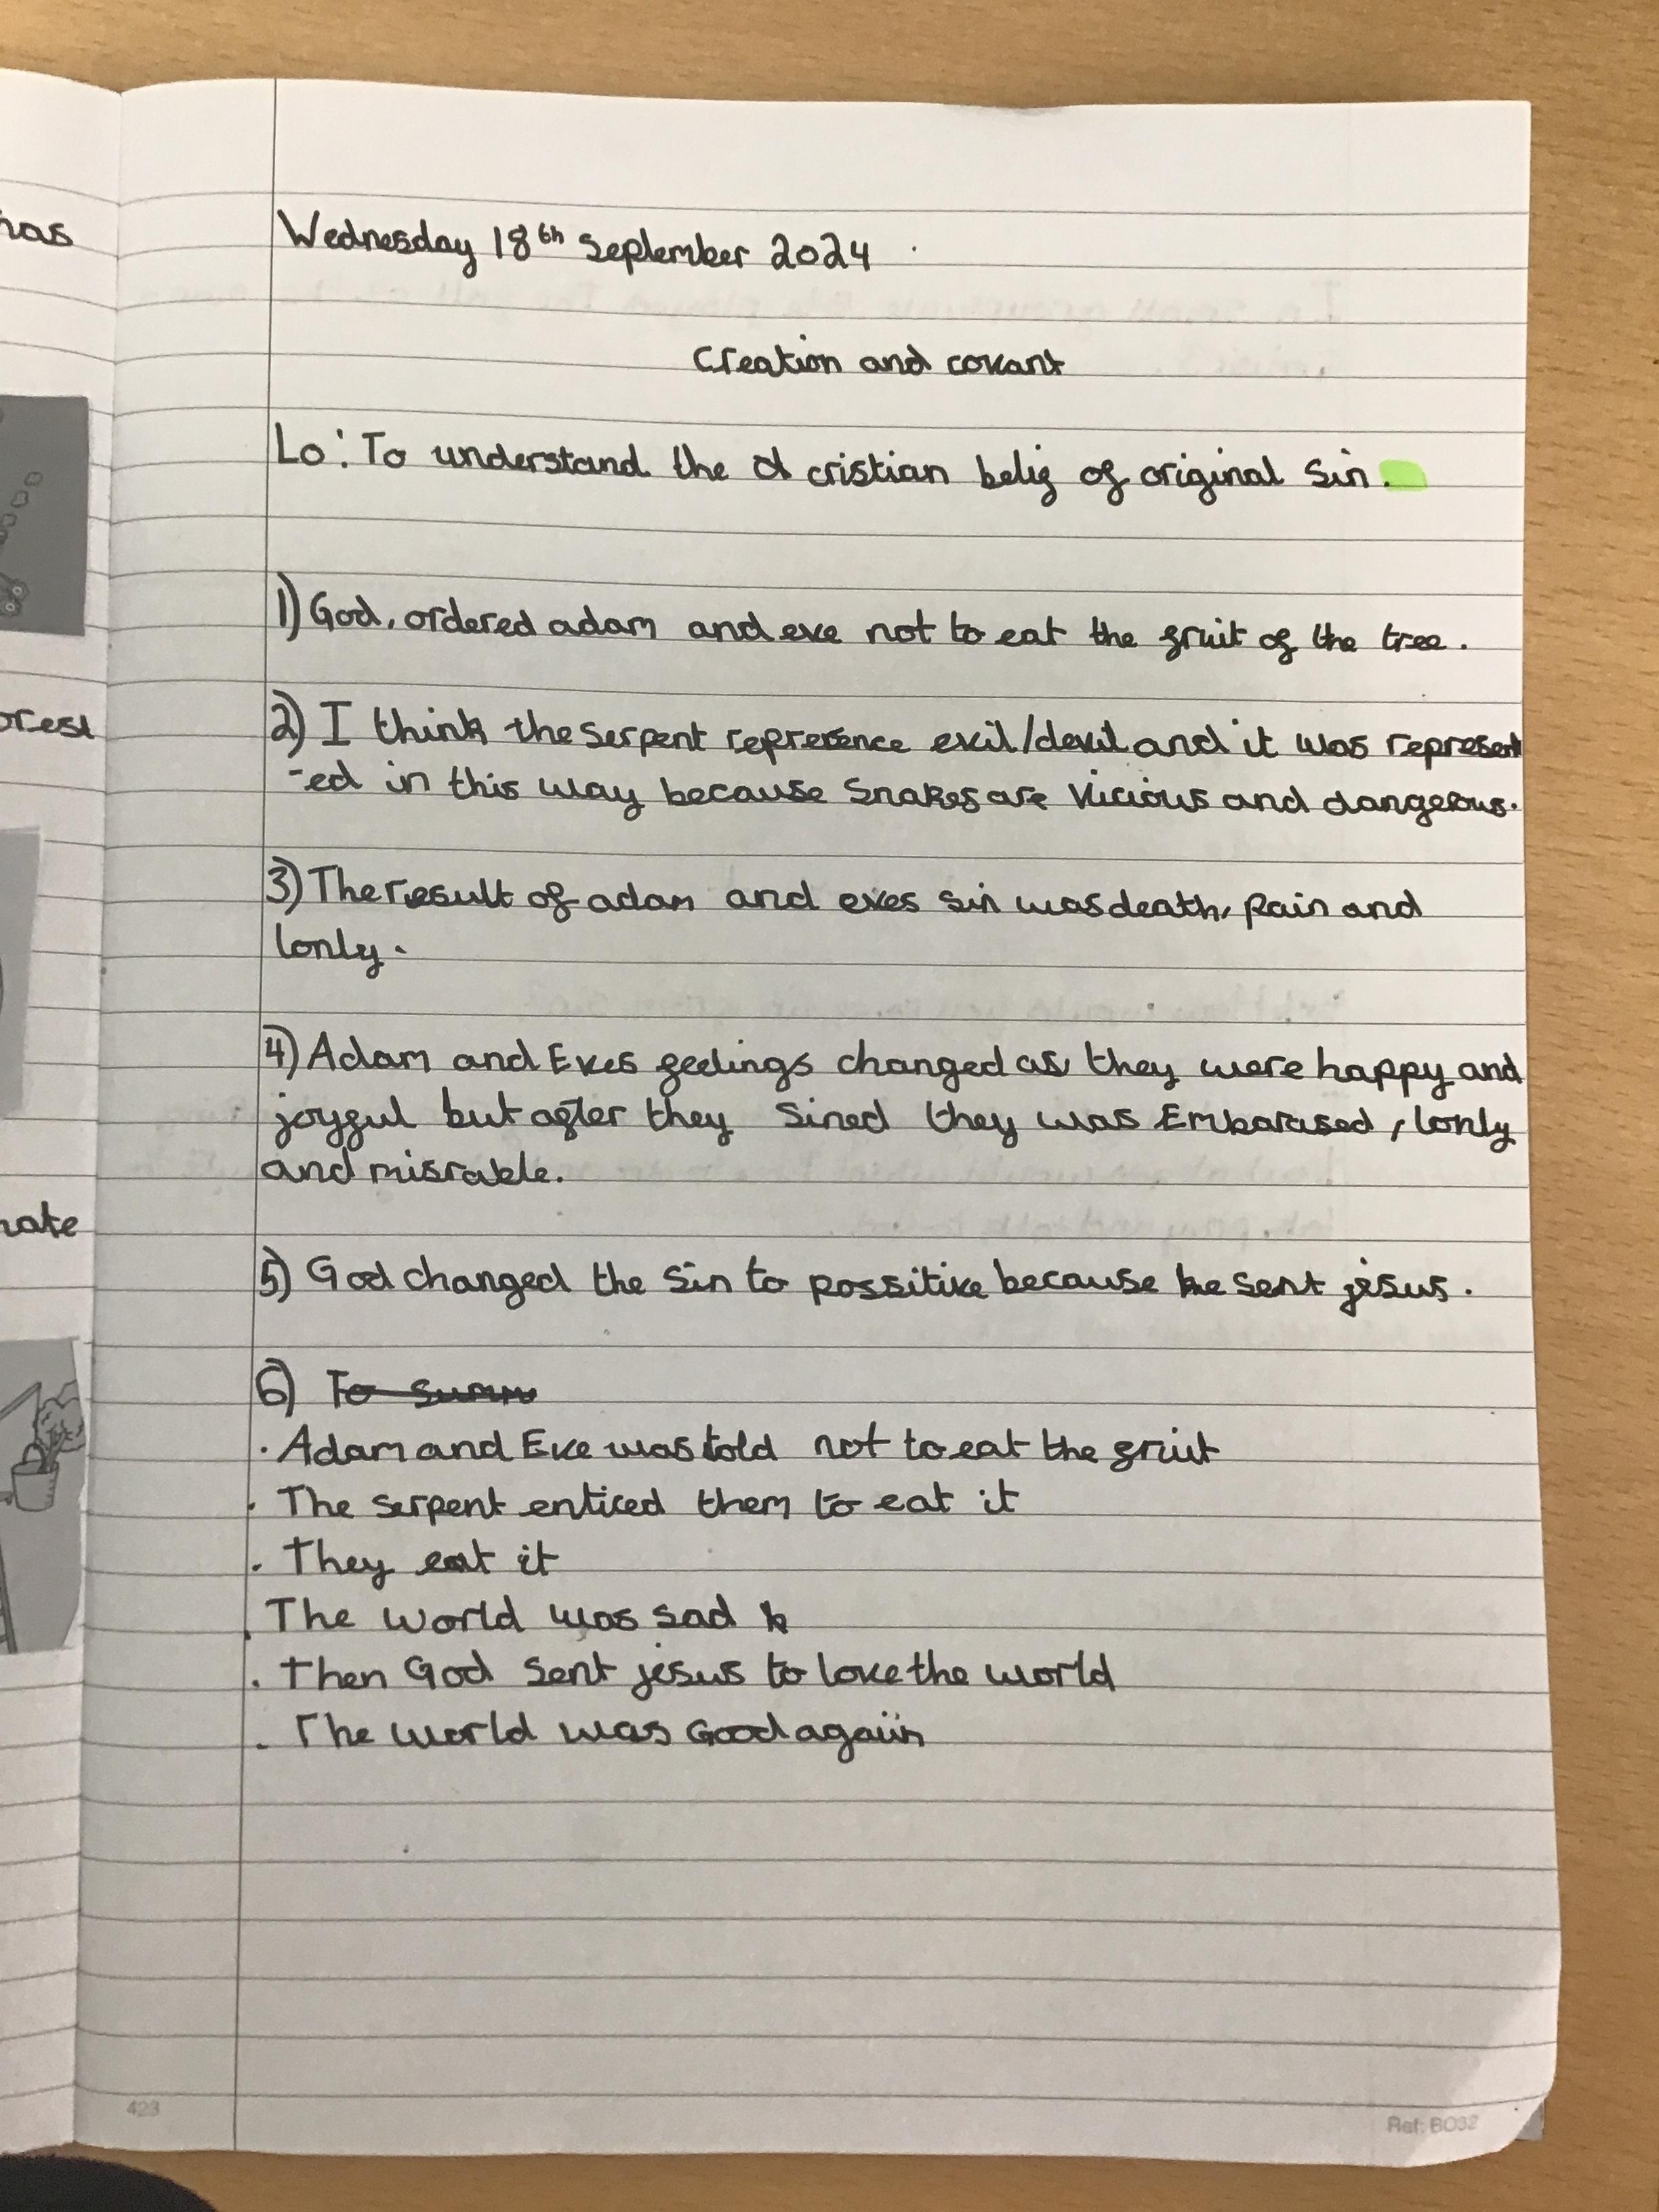 has
orest
nate
Wednesday 18th September 2024
Creation and covant
Lo: To understand the cristian belif of original sin.
1) God, ordered adam and eve not to eat the fruit of the tree.
2) I think the serpent reprerence evil/devil and it was represent
-ed in this way because snakes are vicious and dangerous.
3) The result of adam and eves sin was death, pain and
lonly.
4) Adam and Eves feelings changed as they were happy and
joyful but after they sined they was Embarased, lonly
and misrable.
5) God changed the sin to possitive because he sent jesus.
6) To summ
· Adam and Eve was told not to eat the fruit
· The serpent enticed them to eat it
· They eat it
. The world was sad
. Then God sent jesus to love the world
. The world was Good again
423
Ref: BO32